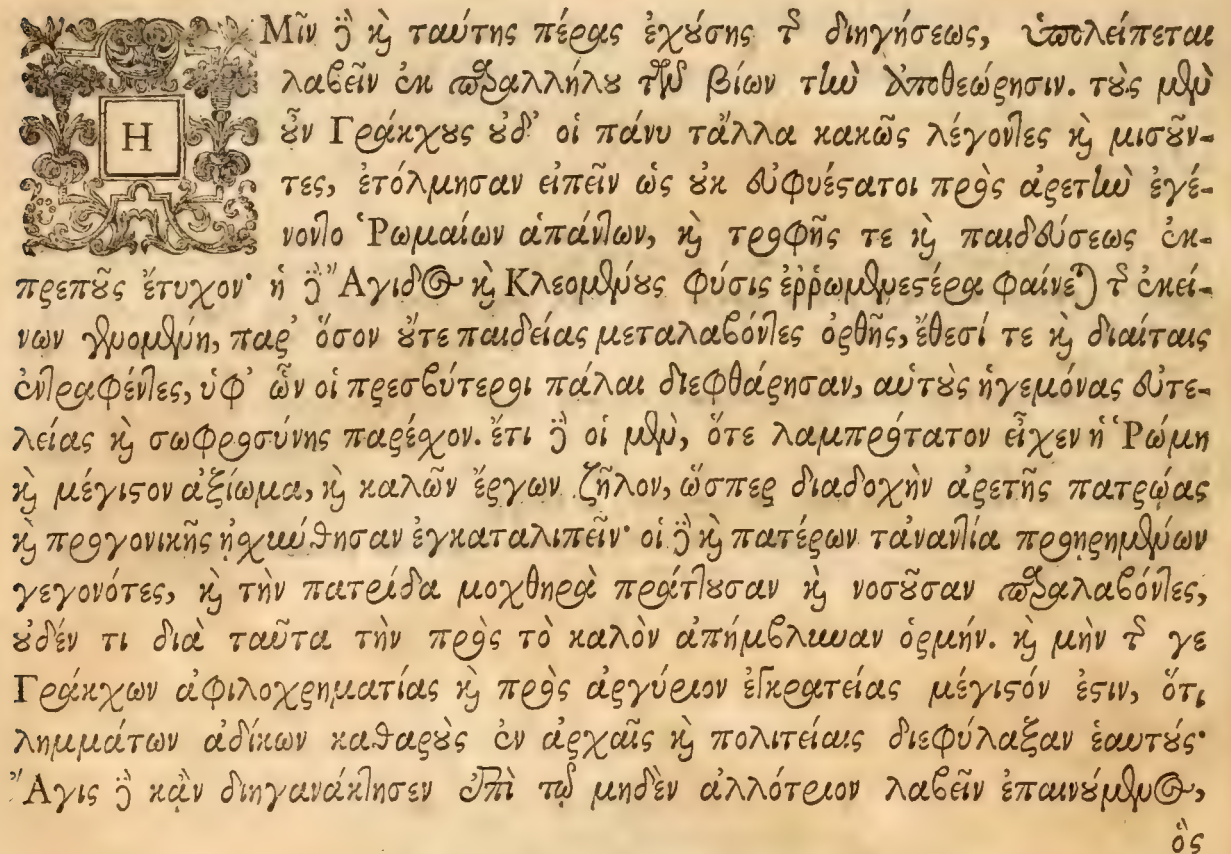 ΗΜῖν δὲ καὶ ταύτης πέρας ἐχούσης τῆς διηγήσεως, ὑπολείπεται
λαβεῖν ἐκ παραλλήλου τῶν βίων τὴν ἀποθεώρησιν. τοὺς μὲν
οὖν Γράκχους οὐδ' οἱ πάνυ τἄλλα κακῶς λέγοντες καὶ μισοῦν-
τες, ἐτόλμησαν εἰπεῖν ὡς οὐκ εὐφυέστατοι πρὸς ἀρετὴν ἐγέ-
νοντο Ῥωμαίων ἁπάντων, καὶ τροφῆς τε καὶ παιδεύσεως ἐκ-
πρεποῦς ἔτυχον· ἡ δὲ Ἄγιδος καὶ Κλεομένους φύσις ἐῤῥωμενεστέρα φαίνεται τῆς ἐκεί-
νων γενομένη, παρ' ὅσον οὔτε παιδείας μεταλαβόντες ὀρθῆς, ἔθεσί τε καὶ διαίταις
ἐντραφέντες, ὑφ' ὧν οἱ πρεσβύτεροι πάλαι διεφθάρησαν, αὑτοὺς ἡγεμόνας εὐτε-
λείας καὶ σωφροσύνης παρέχον. ἔτι δὲ οἱ μὲν, ὅτε λαμπρότατον εἶχεν ἡ Ῥώμη
καὶ μέγιστον ἀξίωμα, καὶ καλῶν ἔργων ζῆλον, ὥσπερ διαδοχὴν ἀρετῆς πατρῴας
καὶ προγονικῆς ᾐσχύνθησαν ἐγκαταλιπεῖν· οἱ δὲ καὶ πατέρων τἀναντία προῃρημένων
γεγονότες, καὶ τὴν πατρίδα μοχθηρὰ πράττουσαν καὶ νοσοῦσαν παραλαβόντες,
οὐδέν τι διὰ ταῦτα τὴν πρὸς τὸ καλὸν ἀπήμβλυναν ὁρμήν. καὶ μὴν τῆς γε
Γράκχων ἀφιλοχρηματίας καὶ πρὸς ἀργύριον ἐγκρατείας μέγιστόν ἐστιν, ὅτι
λημμάτων ἀδίκων καθαροὺς ἐν ἀρχαῖς καὶ πολιτείαις διεφύλαξαν ἑαυτούς·
Ἄγις δὲ κἂν διηγανάκτησεν ἐπὶ τῷ μηδὲν ἀλλότριον λαβεῖν ἐπαινούμενος,
ὃς